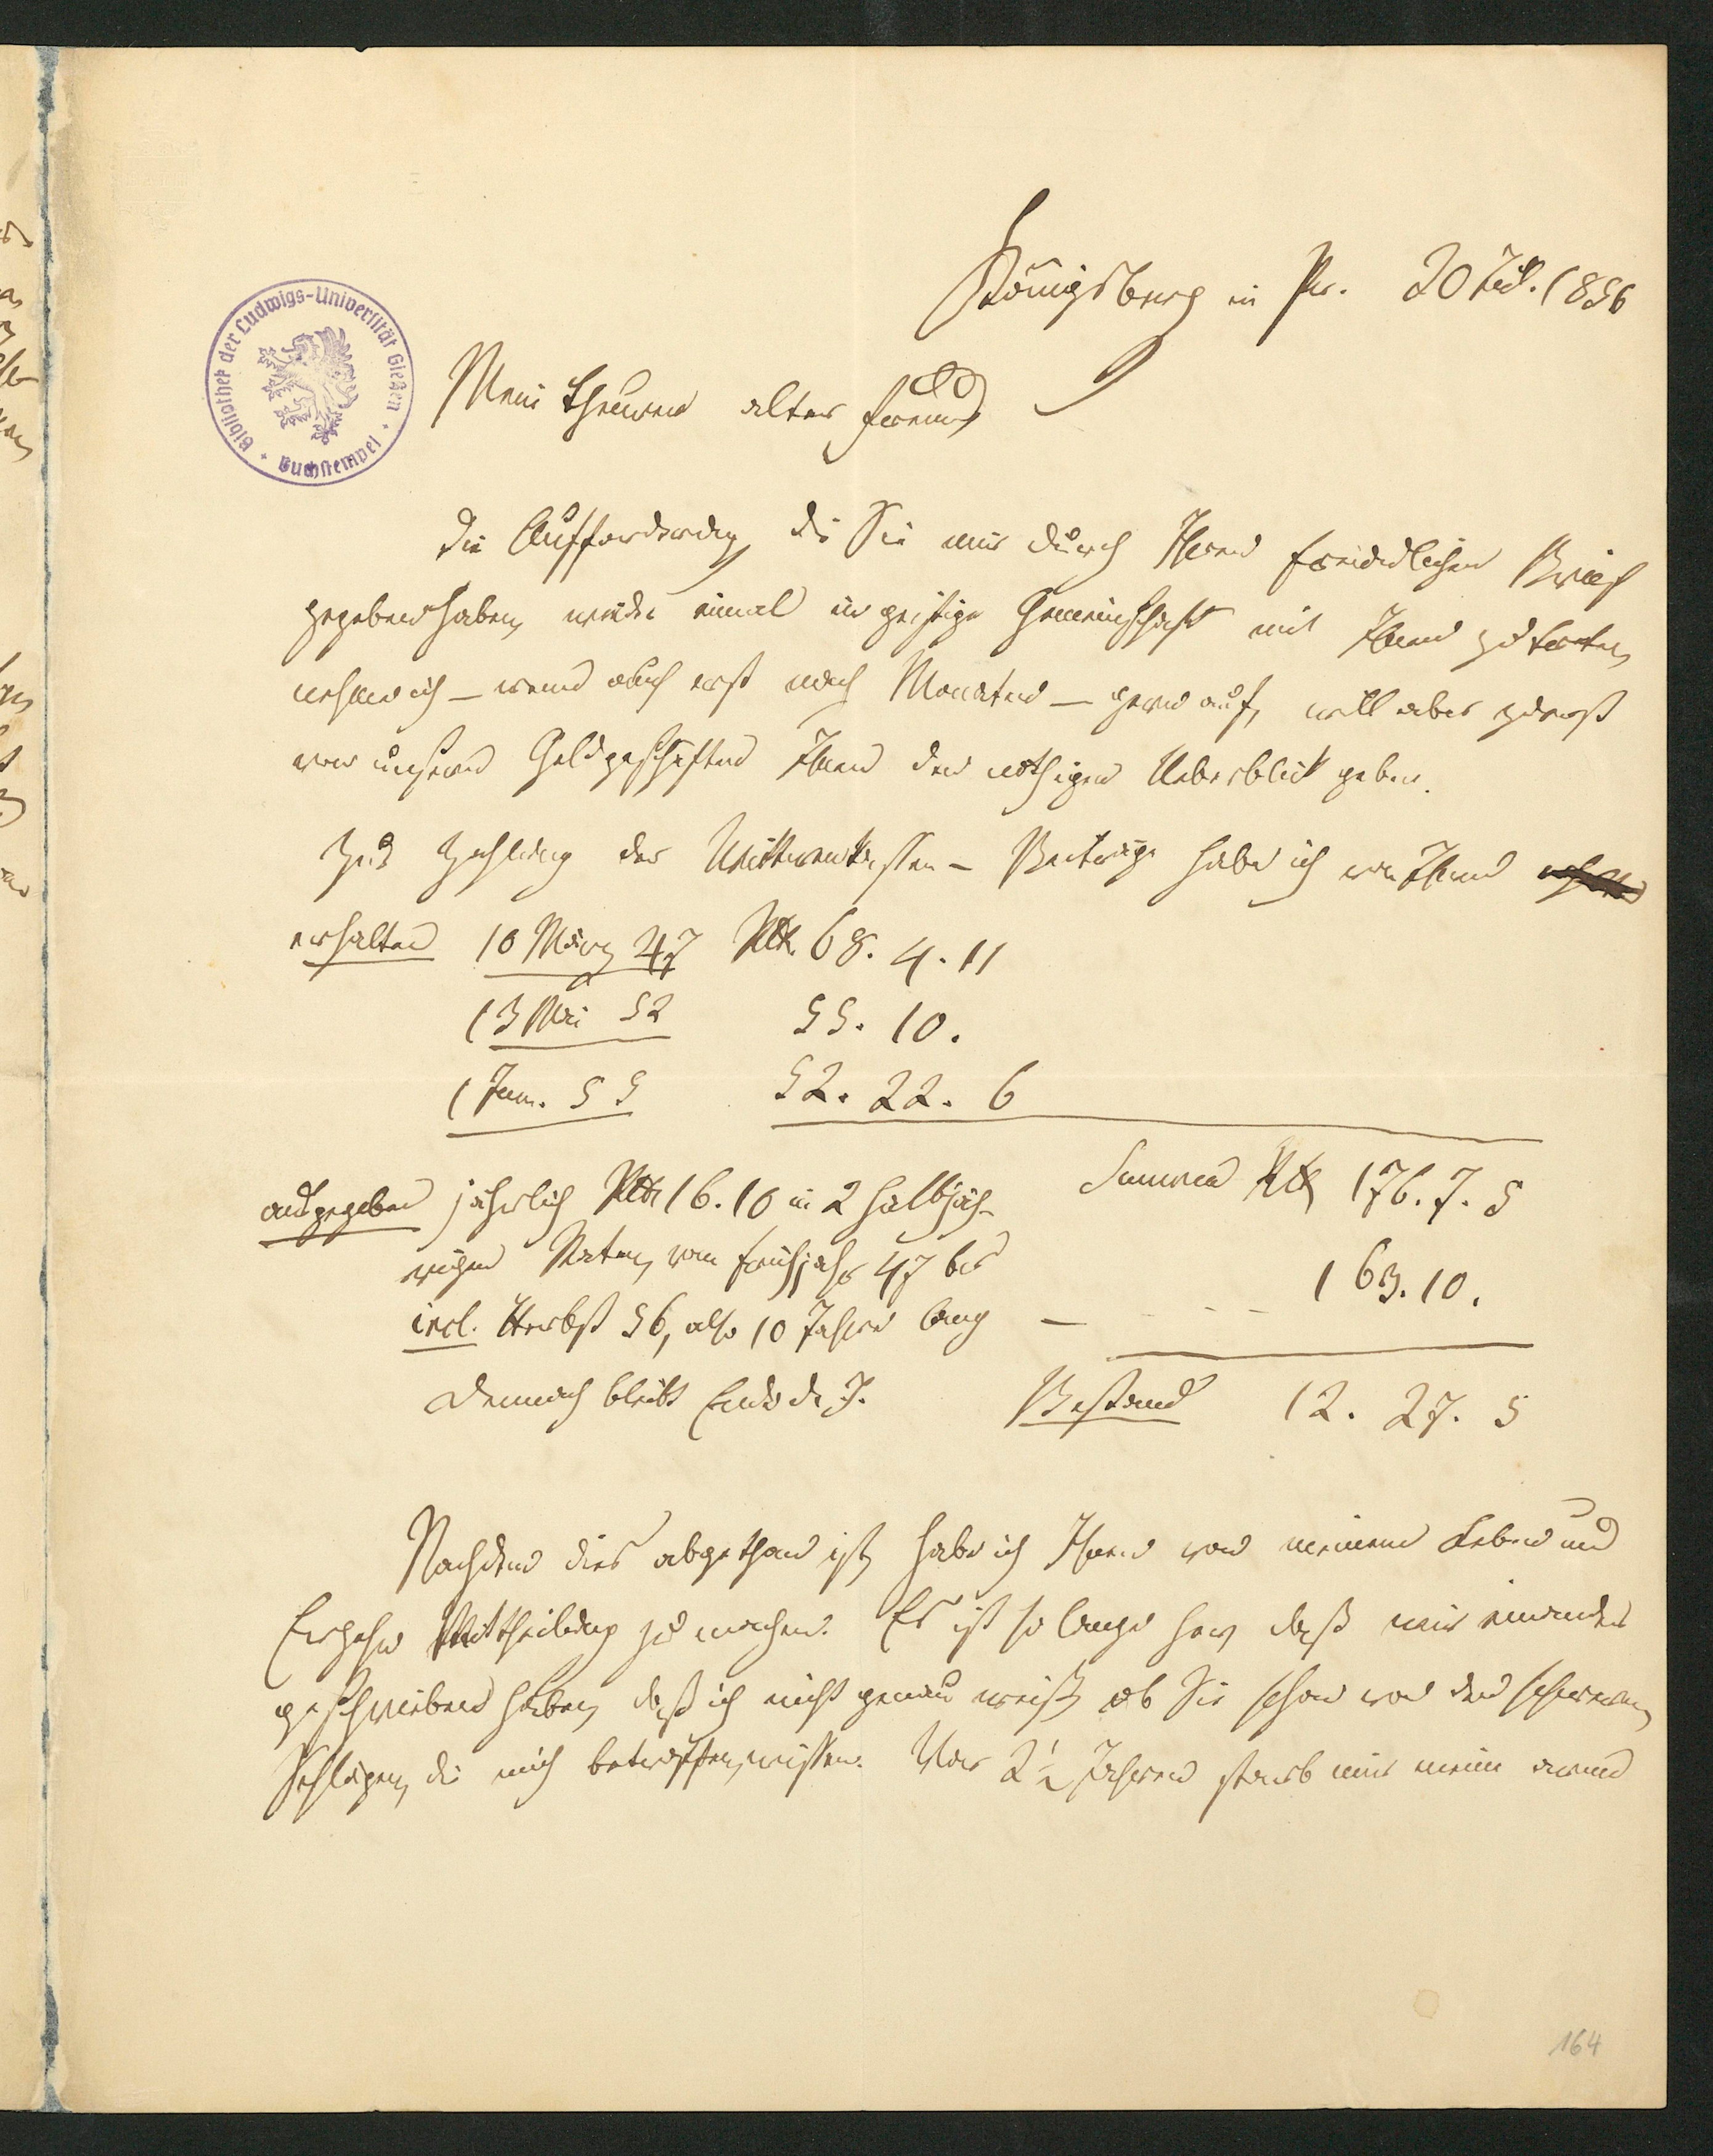 Königsberg in Pr. 20 Juli. 1856
Bibliothek der Ludwigs-Universität Gießen · Buchstempel ·
Mein theurer alter Freund
Die Aufforderung, die Sie mir durch Ihren freundlichen Brief
gegeben haben, wieder einmal in geistige Gemeinschaft mit Ihnen zu treten,
nehme ich – wenn auch erst nach Monaten – gern auf, will aber zuerst
von unsern Geldgeschäften Ihnen den nöthigen Ueberblick geben.
Zur Zahlung der Wittwenkassen-Beiträge habe ich von Ihnen
erhalten 10 März 47 Rtl. 68. 4. 11
13 Mai 52 55. 10.
1 Jan. 55 52. 22. 6
Summa Rtl 176. 7. 5
ausgegeben jährlich Rtl 16. 10 in 2 halbjäh-
rigen Raten, vom Frühjahr 47 bis
incl. Herbst 56, also 10 Jahre lang — - - - 163. 10.
Demnach bleibt Ende d. J. Bestand 12. 27. 5
Nachdem dies abgethan ist, habe ich Ihnen von meinem Leben und
Ergehn Mittheilung zu machen. Es ist so lange her, daß wir einander
geschrieben haben, daß ich nicht genau weiß, ob Sie schon von den schweren
Schlägen, die mich betroffen, wissen. Vor 2½ Jahren starb mir meine arme
164